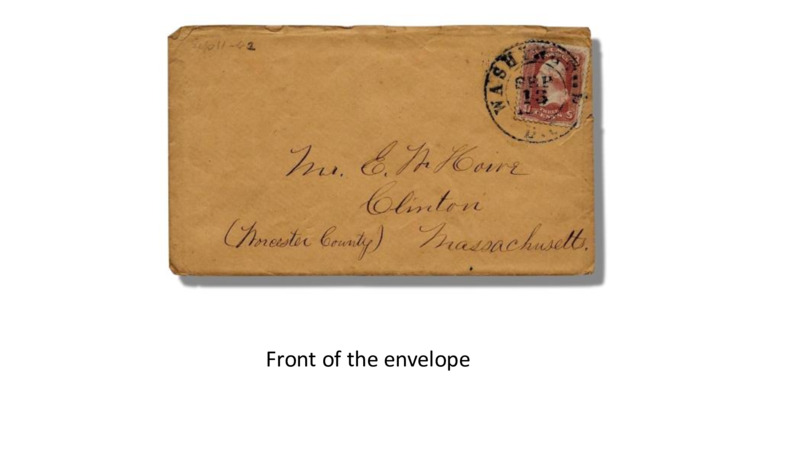 WASHIN
SEP
13
D.C.
Mr. E. W. Howe
Clinton
(Worcester County) Massachusetts.
Front of the envelope